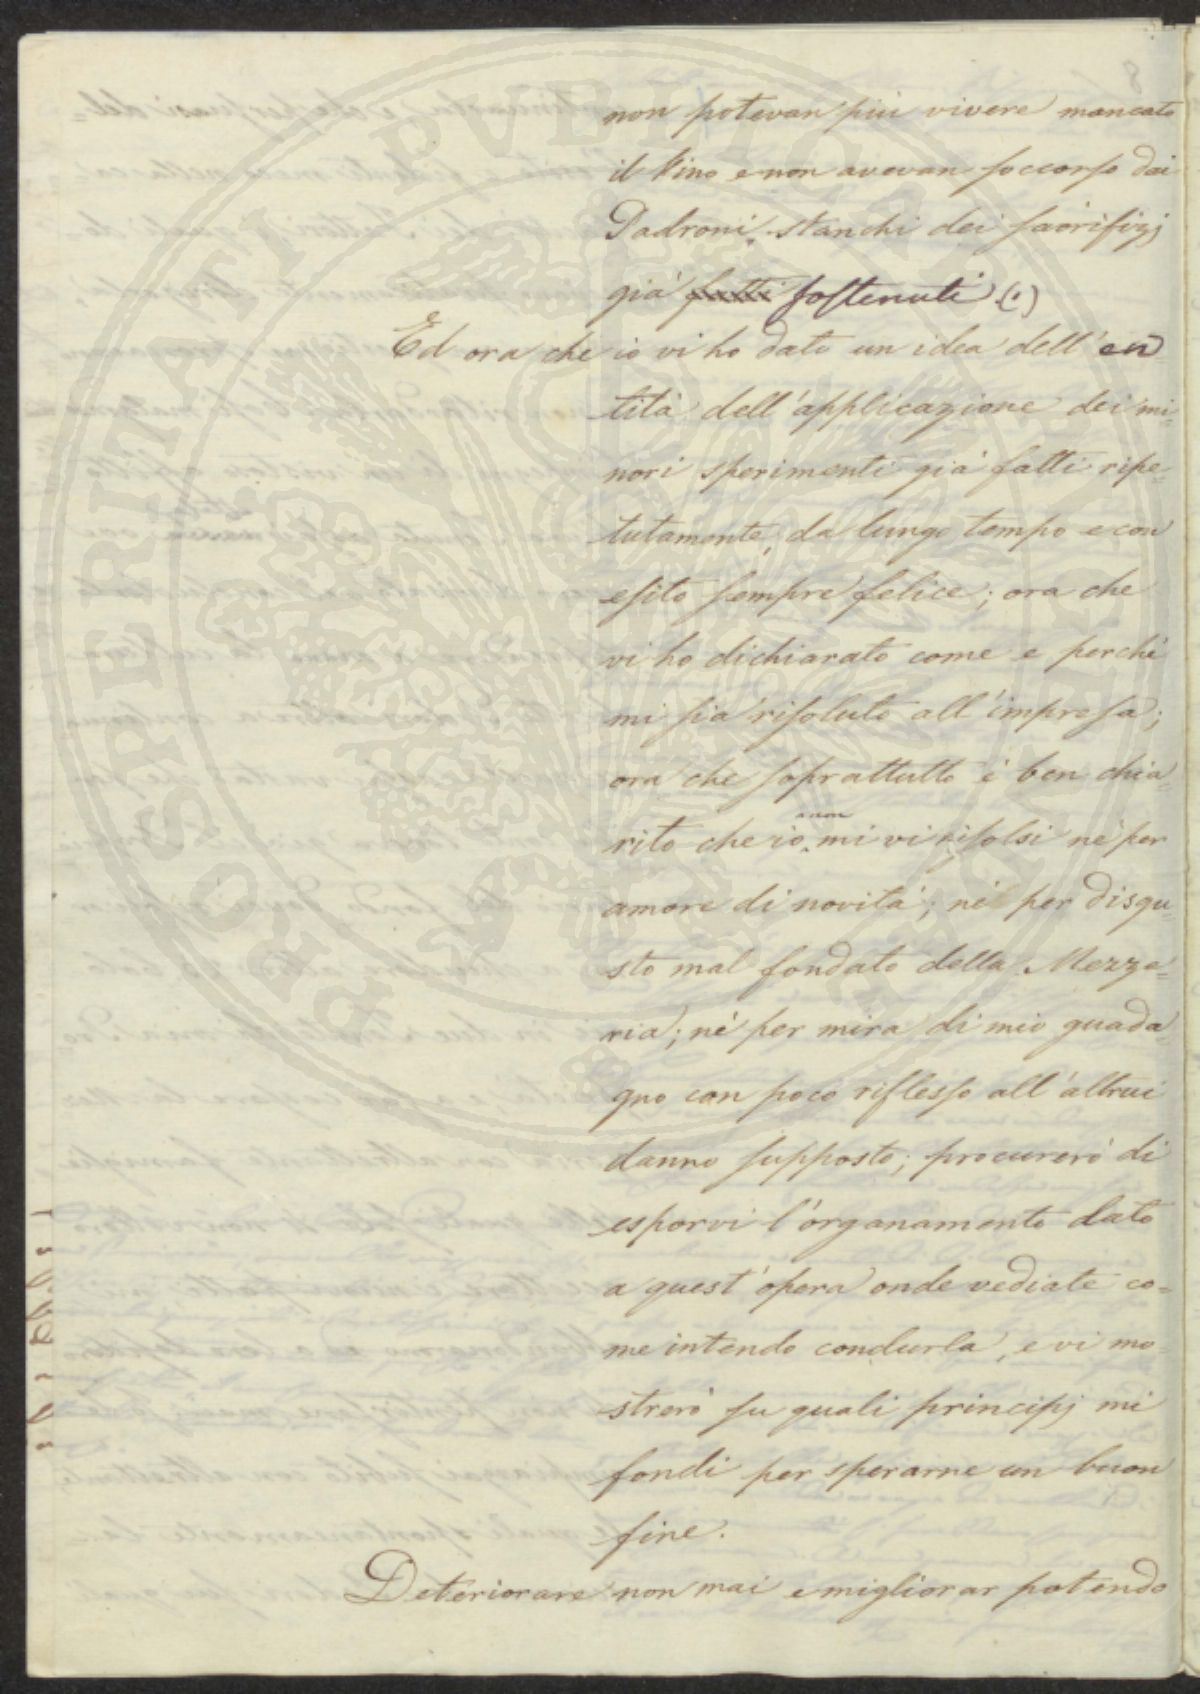 non potevan più vivere mancato
il Vino e non avevan soccorso dai
Padroni, stanchi dei sacrifizj
già fatti sostenuti (1)
Ed ora che io vi ho dato un idea dell'en
tità dell'applicazione dei mi-
nori sperimenti già fatti ripe-
tutamente, da lungo tempo e con
esito sempre felice; ora che
vi ho dichiarato come e perchè
mi sia risoluto all'impresa;
ora che soprattutto è ben chia-
rito che io non mi vi risolsi nè per
amore di novità; nè per disgu-
sto mal fondato della Mezze-
ria; nè per mira di mio guada-
gno con poco riflesso all'altrui
danno supposto; procurerò di
esporvi l'organamento dato
a quest'opera onde vediate co-
me intendo condurla, e vi mo-
strerò su quali principj mi
fondi per sperarne un buon
fine.
Deteriorare non mai e migliorar potendo
PROSPERITATI PVBLICAE AVGENDAE